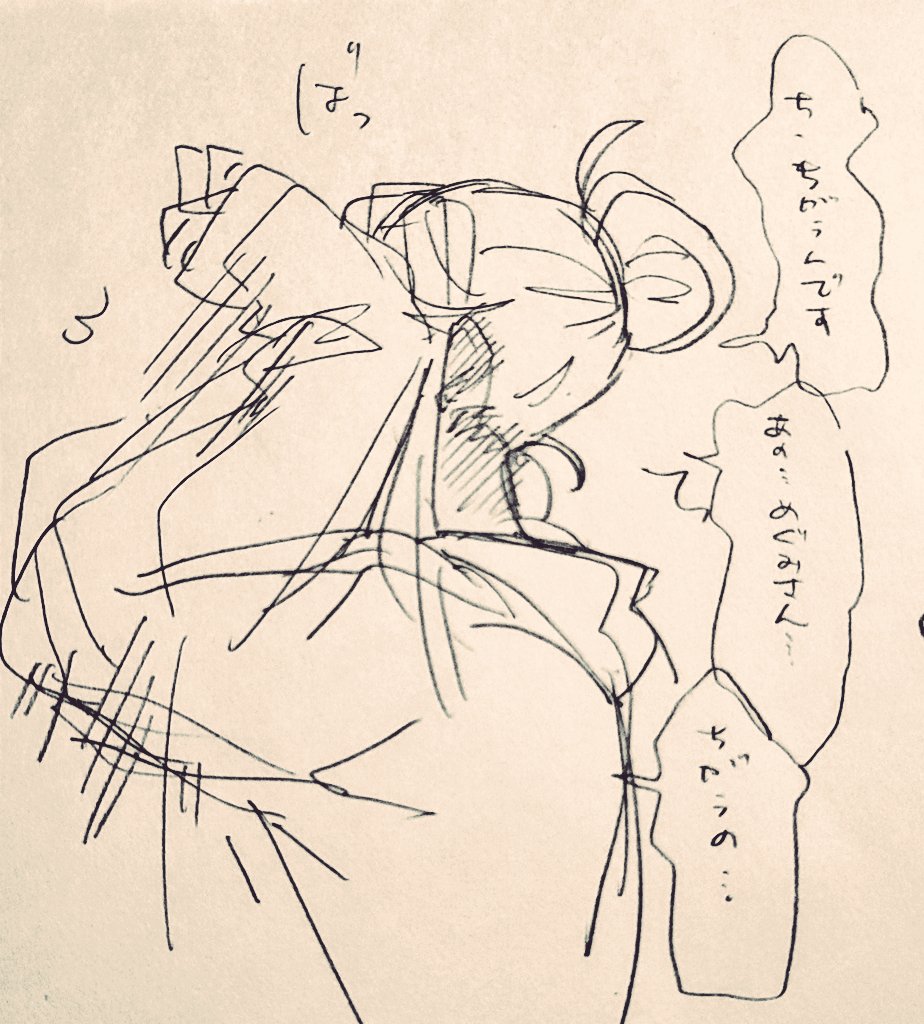 ち、ちがうんです
あの…めぐみさん…
ちがうの…
ばっ